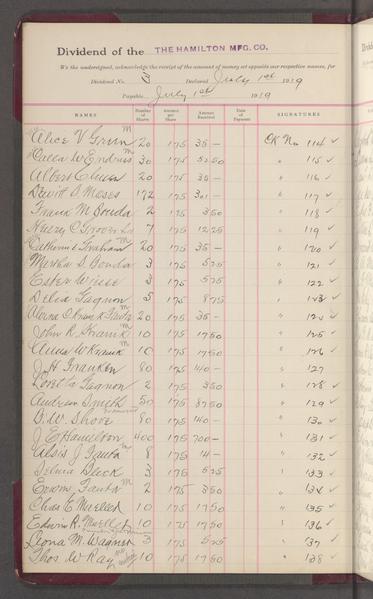 Dividend of the THE HAMILTON MFG. CO.
We the undersigned, acknowledge the receipt of the amount of money set opposite our respective names, for
Dividend No. 3 Declared July 1st 1919
Payable July 1st 1919
NAMES Number of Shares Amount per Share Amount Received Date of Payment SIGNATURES
Alice V 20 175 35 — CK No 114 ✓
W Endries 30 175 5250 " 115 ✓
Albert 20 175 35 — " 116 ✓
David D. Moses 172 175 301 — " 117 ✓
Frank M Bouda 2 175 350 " 118 ✓
Henry C Groover 7 175 1225 " 119 ✓
Catherine Graham 20 175 35 — " 120 ✓
Martha S. Bouda 3 175 525 " 121 ✓
Ester Wiese 3 175 525 " 122 ✓
Delia Gagnon 5 175 875 " 123 ✓
Kranik Fanta 20 175 35 — " 124 ✓
John R. Kranik 10 175 1750 " 125 ✓
Anna W Kranik 10 175 1750 " 126 ✓
J. H. Franken 80 175 140 — " 127
Loretta Gagnon 2 175 350 " 128 ✓
Andrew Smith 50 175 8750 " 129 ✓
B. W. Shove 80 175 140 — " 130 ✓
J. E Hamilton 400 175 700 — " 131 ✓
Alois J Fanta 8 175 14 — " 132 ✓
Deck 3 175 525 " 133 ✓
Edwin Fanta 2 175 350 " 134 ✓
Chas E Mueller 10 175 1750 " 135 ✓
Edwin R. Mueller 10 175 1750 " 136 ✓
Leona M. Wagner 3 175 525 " 137 ✓
Thos W Ray 10 175 1750 " 138 ✓